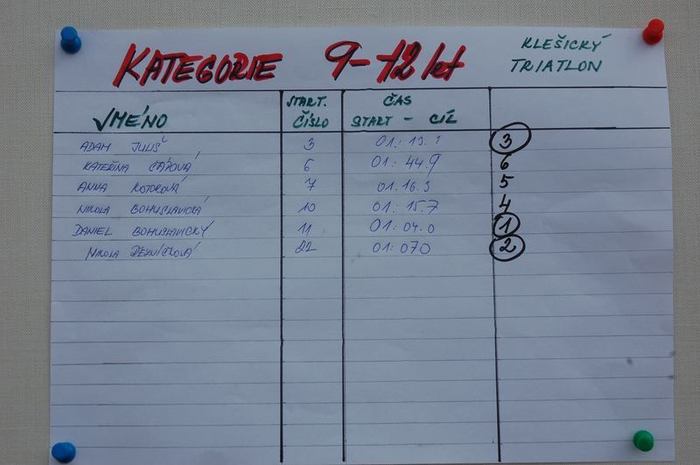 KATEGORIE 9-12 let
KLEŠICKÝ
TRIATLON
JMÉNO
START. ČÍSLO
ČAS
START - CÍL
ADAM 3 01: 13. 3
KATEŘINA 6 01: 44.9 6
ANNA KOTOROVÁ 7 01: 16.3 5
NIKOLA BOHUSLAVICKÁ 10 01: 15.7 4
DANIEL BOHUSLAVICKÝ 11 01: 04.0 1
NIKOLA 22 01: 070 2